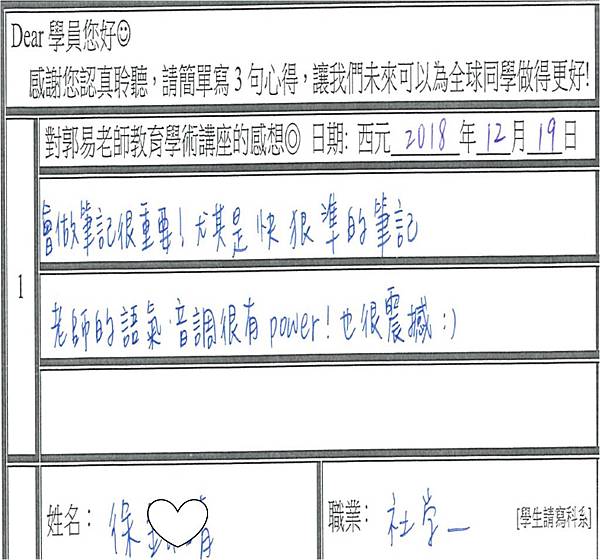 Dear 學員您好☺
感謝您認真聆聽，請簡單寫 3 句心得，讓我們未來可以為全球同學做得更好!
對郭易老師教育學術講座的感想◎ 日期: 西元 2018 年 12 月 19 日
1
會做筆記很重要! 尤其是快狠準的筆記
老師的語氣、音調很有power! 也很震撼 :)
姓名: 徐
職業: 社學一
[學生請寫科系]